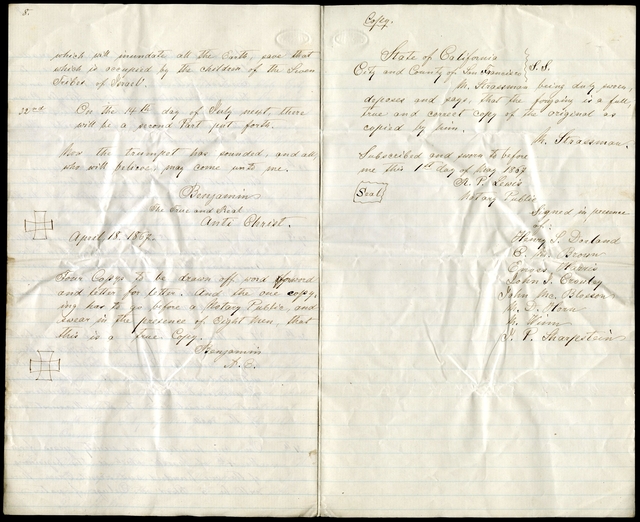 5.
which will inundate all the Earth, save that
which is occupied by the children of the Seven
Tribes of Israel.
22nd On the 14th day of July next, there
will be a second Part put forth.
Now the trumpet has sounded, and all,
who will believe, may come unto me.
Benjamin
The True and Real
Anti Christ.
April 18. 1867.
Four Copys to be drawn off word for word
and letter for letter. And the one copy,
ing has to go before a Notary Public, and
swear in the presence of Eight Men that
this is a true Copy.
Benjamin
A. C.
Copy.
State of California
City and County of San Francisco } S.S.
M. Strassman being duly sworn,
deposes and says, that the forgoing is a full,
true and correct copy of the original as
copied by him.
M. Strassman.
Subscribed and sworn to before
me this 1st day of May 1867
Seal
H. P. Lewis
Notary Public
Signed in presence
of
Henry S. Dorland
C. M. Brown
John S. Crosby
John Mc. Blosson
M. D. Horn
J. P. Sharpstein